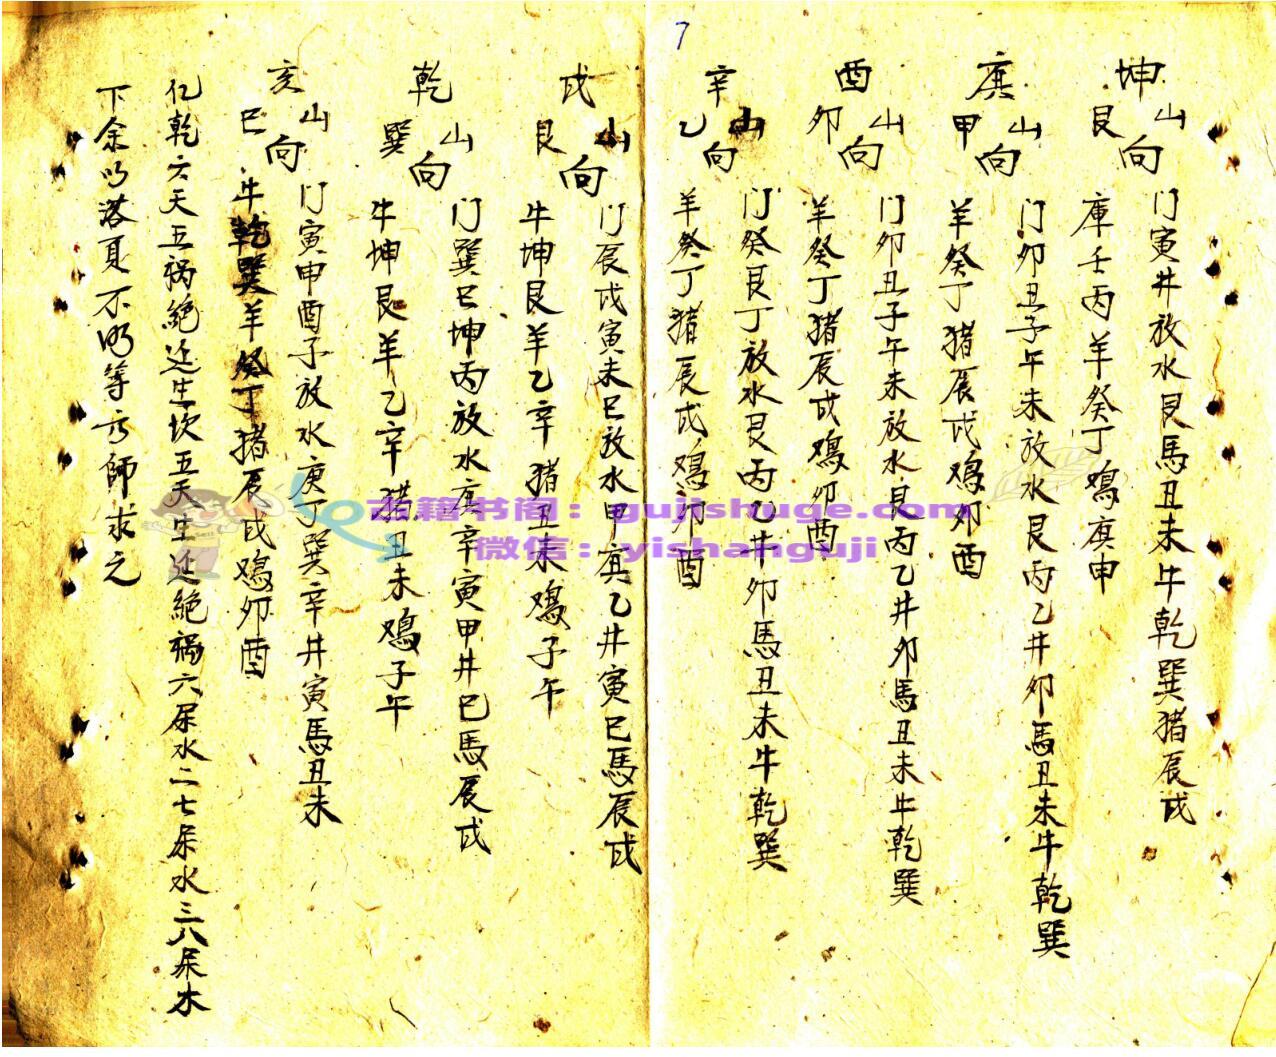 7
坤山艮向
门寅井放水艮馬丑未牛乾巽猪辰戌
庫壬丙羊癸丁鳮庚申
庚山甲向
门卯丑子午未放水艮丙乙井卯馬丑未牛乾巽
羊癸丁猪辰戌鳮卯酉
酉山卯向
门卯丑子午未放水艮丙乙井卯馬丑未牛乾巽
羊癸丁猪辰戌鳮卯酉
辛山乙向
门癸艮丁放水艮丙乙井卯馬丑未牛乾巽
羊癸丁猪辰戌鳮卯酉
戌山艮向
门辰戌寅未巳放水甲庚乙井寅巳馬辰戌
牛坤艮羊乙辛猪丑未鳮子午
乾山巽向
门巽巳坤丙放水庚辛寅甲井巳馬辰戌
牛坤艮羊乙辛猪丑未鳮子午
亥山巳向
门寅甲酉子放水庚丁巽辛井寅馬丑未
牛乾巽羊癸丁猪辰戌鳮卯酉
乾六天五祸絶延生坎五天生延絶祸六屎水二七屎水三八屎水
下余以落夏不明等方師求之
古籍书阁：gujishuge.com
微信：yishanguji